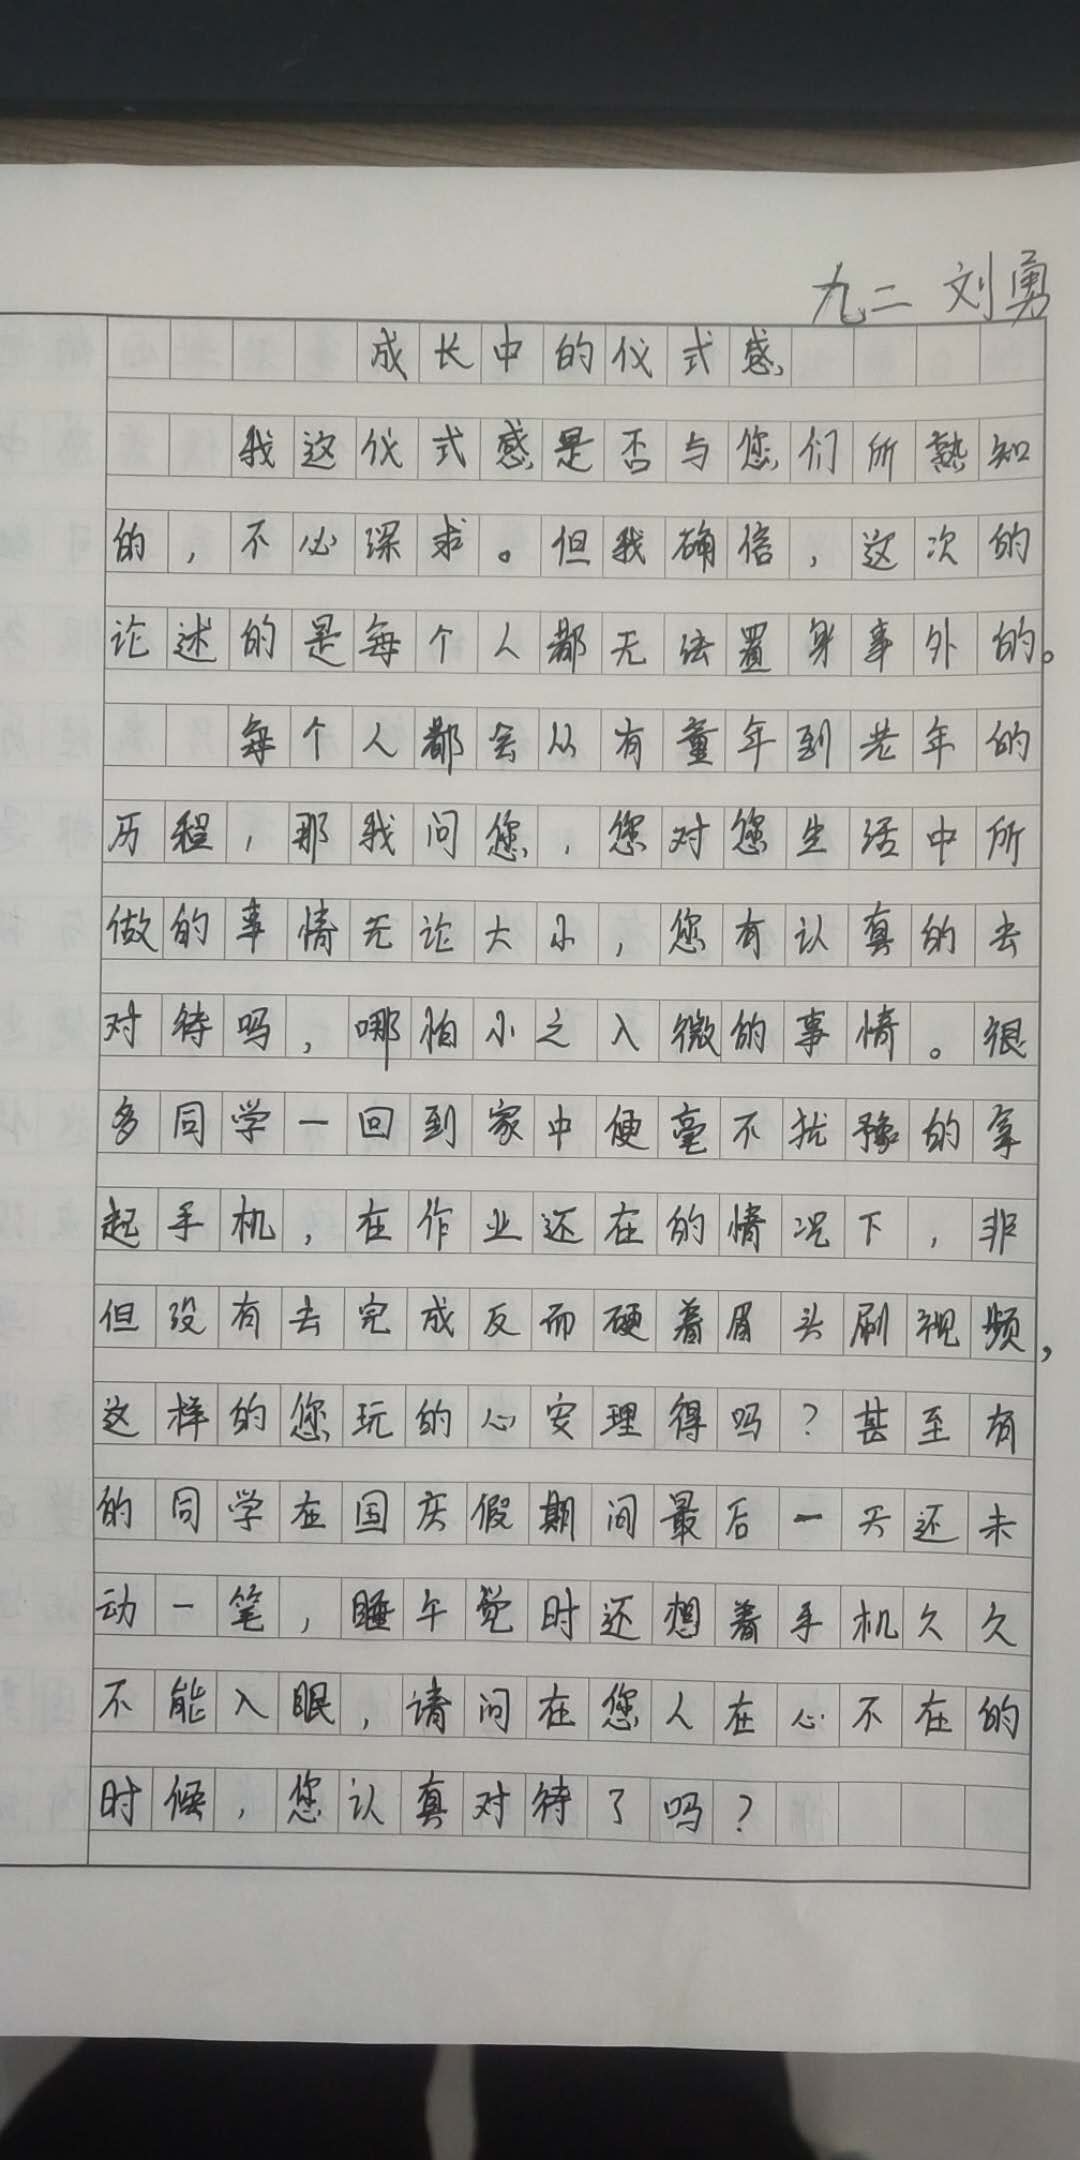 九二 刘勇
成长中的仪式感
我这仪式感是否与您们所熟知
的，不必深求。但我确信，这次的
论述的是每个人都无法置身事外的。
每个人都会从有童年到老年的
历程，那我问您，您对您生活中所
做的事情无论大小，您有认真的去
对待吗，哪怕小之入微的事情。很
多同学一回到家中便毫不扰豫的拿
起手机，在作业还在的情况下，非
但没有去完成反而硬着眉头刷视频，
这样的您玩的心安理得吗？甚至有
的同学在国庆假期间最后一天还未
动一笔，睡午觉时还想着手机久久
不能入眠，请问在您人在心不在的
时候，您认真对待了吗？